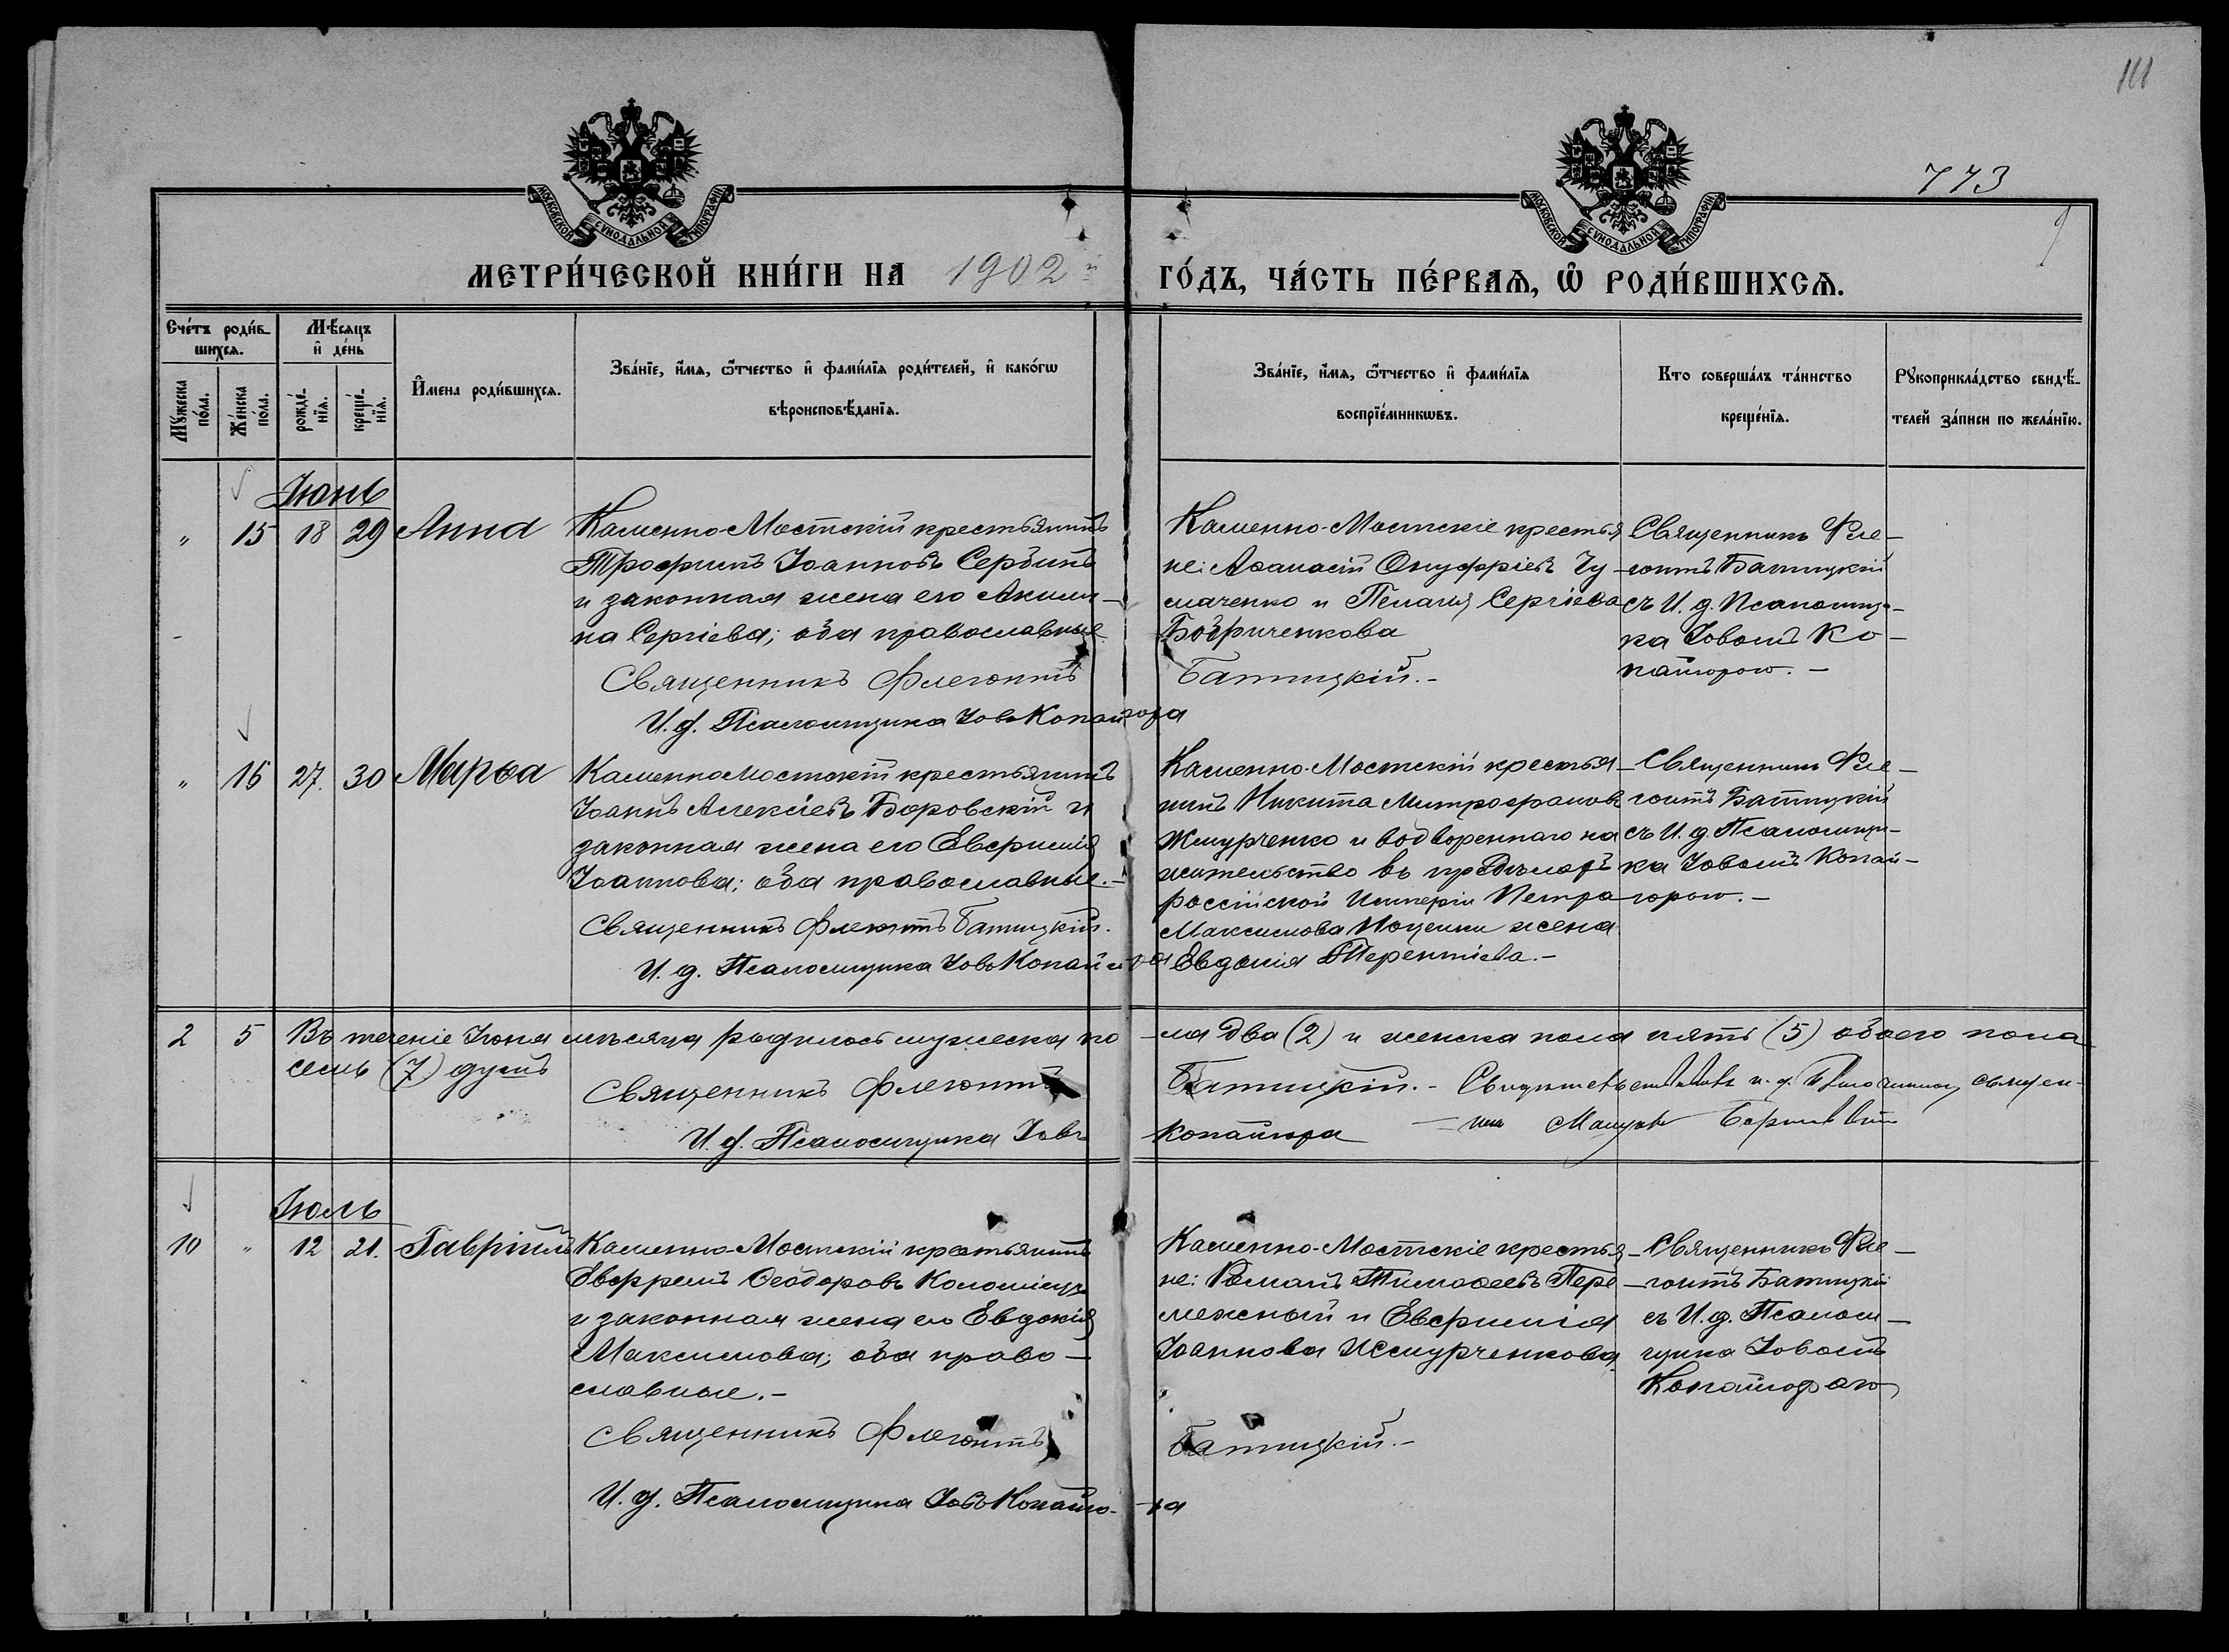 111
773
МОСКОВСКОЙ СУНОДАЛЬНОЙ ТИПОГРАФІИ
МОСКОВСКОЙ СУНОДАЛЬНОЙ ТИПОГРАФІИ
МЕТРИ́ЧЕСКОЙ КНИ́ГИ НА 1902й ГО́ДЪ, ЧА́СТЬ ПЕ́РВАѦ, Ѡ҆ РОДИ́ВШИХСѦ.
Сче́тъ роди́в-
шихсѧ.
Мꙋ́жеска по́ла.
Же́нска по́ла.
Мѣ́сѧцъ
и҆ де́нь
рожде́-нїѧ.
креще́-нїѧ.
И҆мена роди́вшихсѧ.
Зва́нїе, и҆́мѧ, ѻ҆́тчество и҆ фами́лїѧ роди́телей, и҆ како́гѡ
вѣроисповѣ́данїѧ.
Зва́нїе, и҆́мѧ, ѻ҆́тчество и҆ фами́лїѧ
воспрїе́мникѡвъ.
Кто соверша́лъ та́инство
креще́нїѧ.
Рꙋкоприкла́дство свидѣ́-
телей за́писи по жела́нїю.
Іюнь
" 15 18 29 Анна
Каменно-Мостскій крестьянинъ
Трофимъ Іоанновъ Сербинъ
и законная жена его Акили-
на Сергіева; оба православные
Священникъ Флегонтъ Батицкій.-
И. д. Псаломщика Іовъ Копайгора
Каменно-Мостскіе крестья
не: Аѳанасій Онуфріевъ Чу-
маченко и Пелагія Сергіева
Бобриченкова
Священникъ Фле-
гонтъ Батицкій
съ И. д. Псаломщи-
ка Іовомъ Ко-
пайгорою.-
" 16 27. 30 Марѳа
Каменномостскій крестьянинъ
Іоаннъ Алексіевъ Боровскій и
законная жена его Евфимія
Іоаннова; оба православные.-
Священникъ Флегонтъ Батицкій.
И. д. Псаломщика Іовъ Копайгора
Каменно-Мостскій крестья-
нинъ Никита Митрофановъ
Жмурченко и водвореннаго на
жительство въ предѣлахъ
россійской Имперіи Петра
Максимова жена
Евдокія Терентіева.-
Священникъ Фле-
гонтъ Батицкій
съ И. д. Псаломщи-
ка Іовомъ Копай-
горою.-
2 5 Въ теченіе Іюня мѣсяца родилось мужеска по-ла два (2) и женска пола пять (5) обоего пола
семь (7) душъ
Священникъ Флегонтъ Батицкій.- и. д. священ-
И. д. Псаломщика Іовъ Копайгора
Іюль
10 " 12 21. Гавріилъ
Каменно-Мостскій крестьянинъ
Евфремъ Ѳеодоровъ Коломіецъ
и законная жена его Евдокія
Максимова; оба право-
славные.-
Священникъ Флегонтъ Батицкій.-
И. д. Псаломщика Іовъ Копайго-ра
Каменно-Мостскіе крестья-
не: Романъ Тимоѳеевъ Пере-
межный и Евфимія
Іоаннова Жмурченкова
Священникъ Фле-
гонтъ Батицкій
съ И. д. Псалом-
щика Іовомъ
Копайгорою